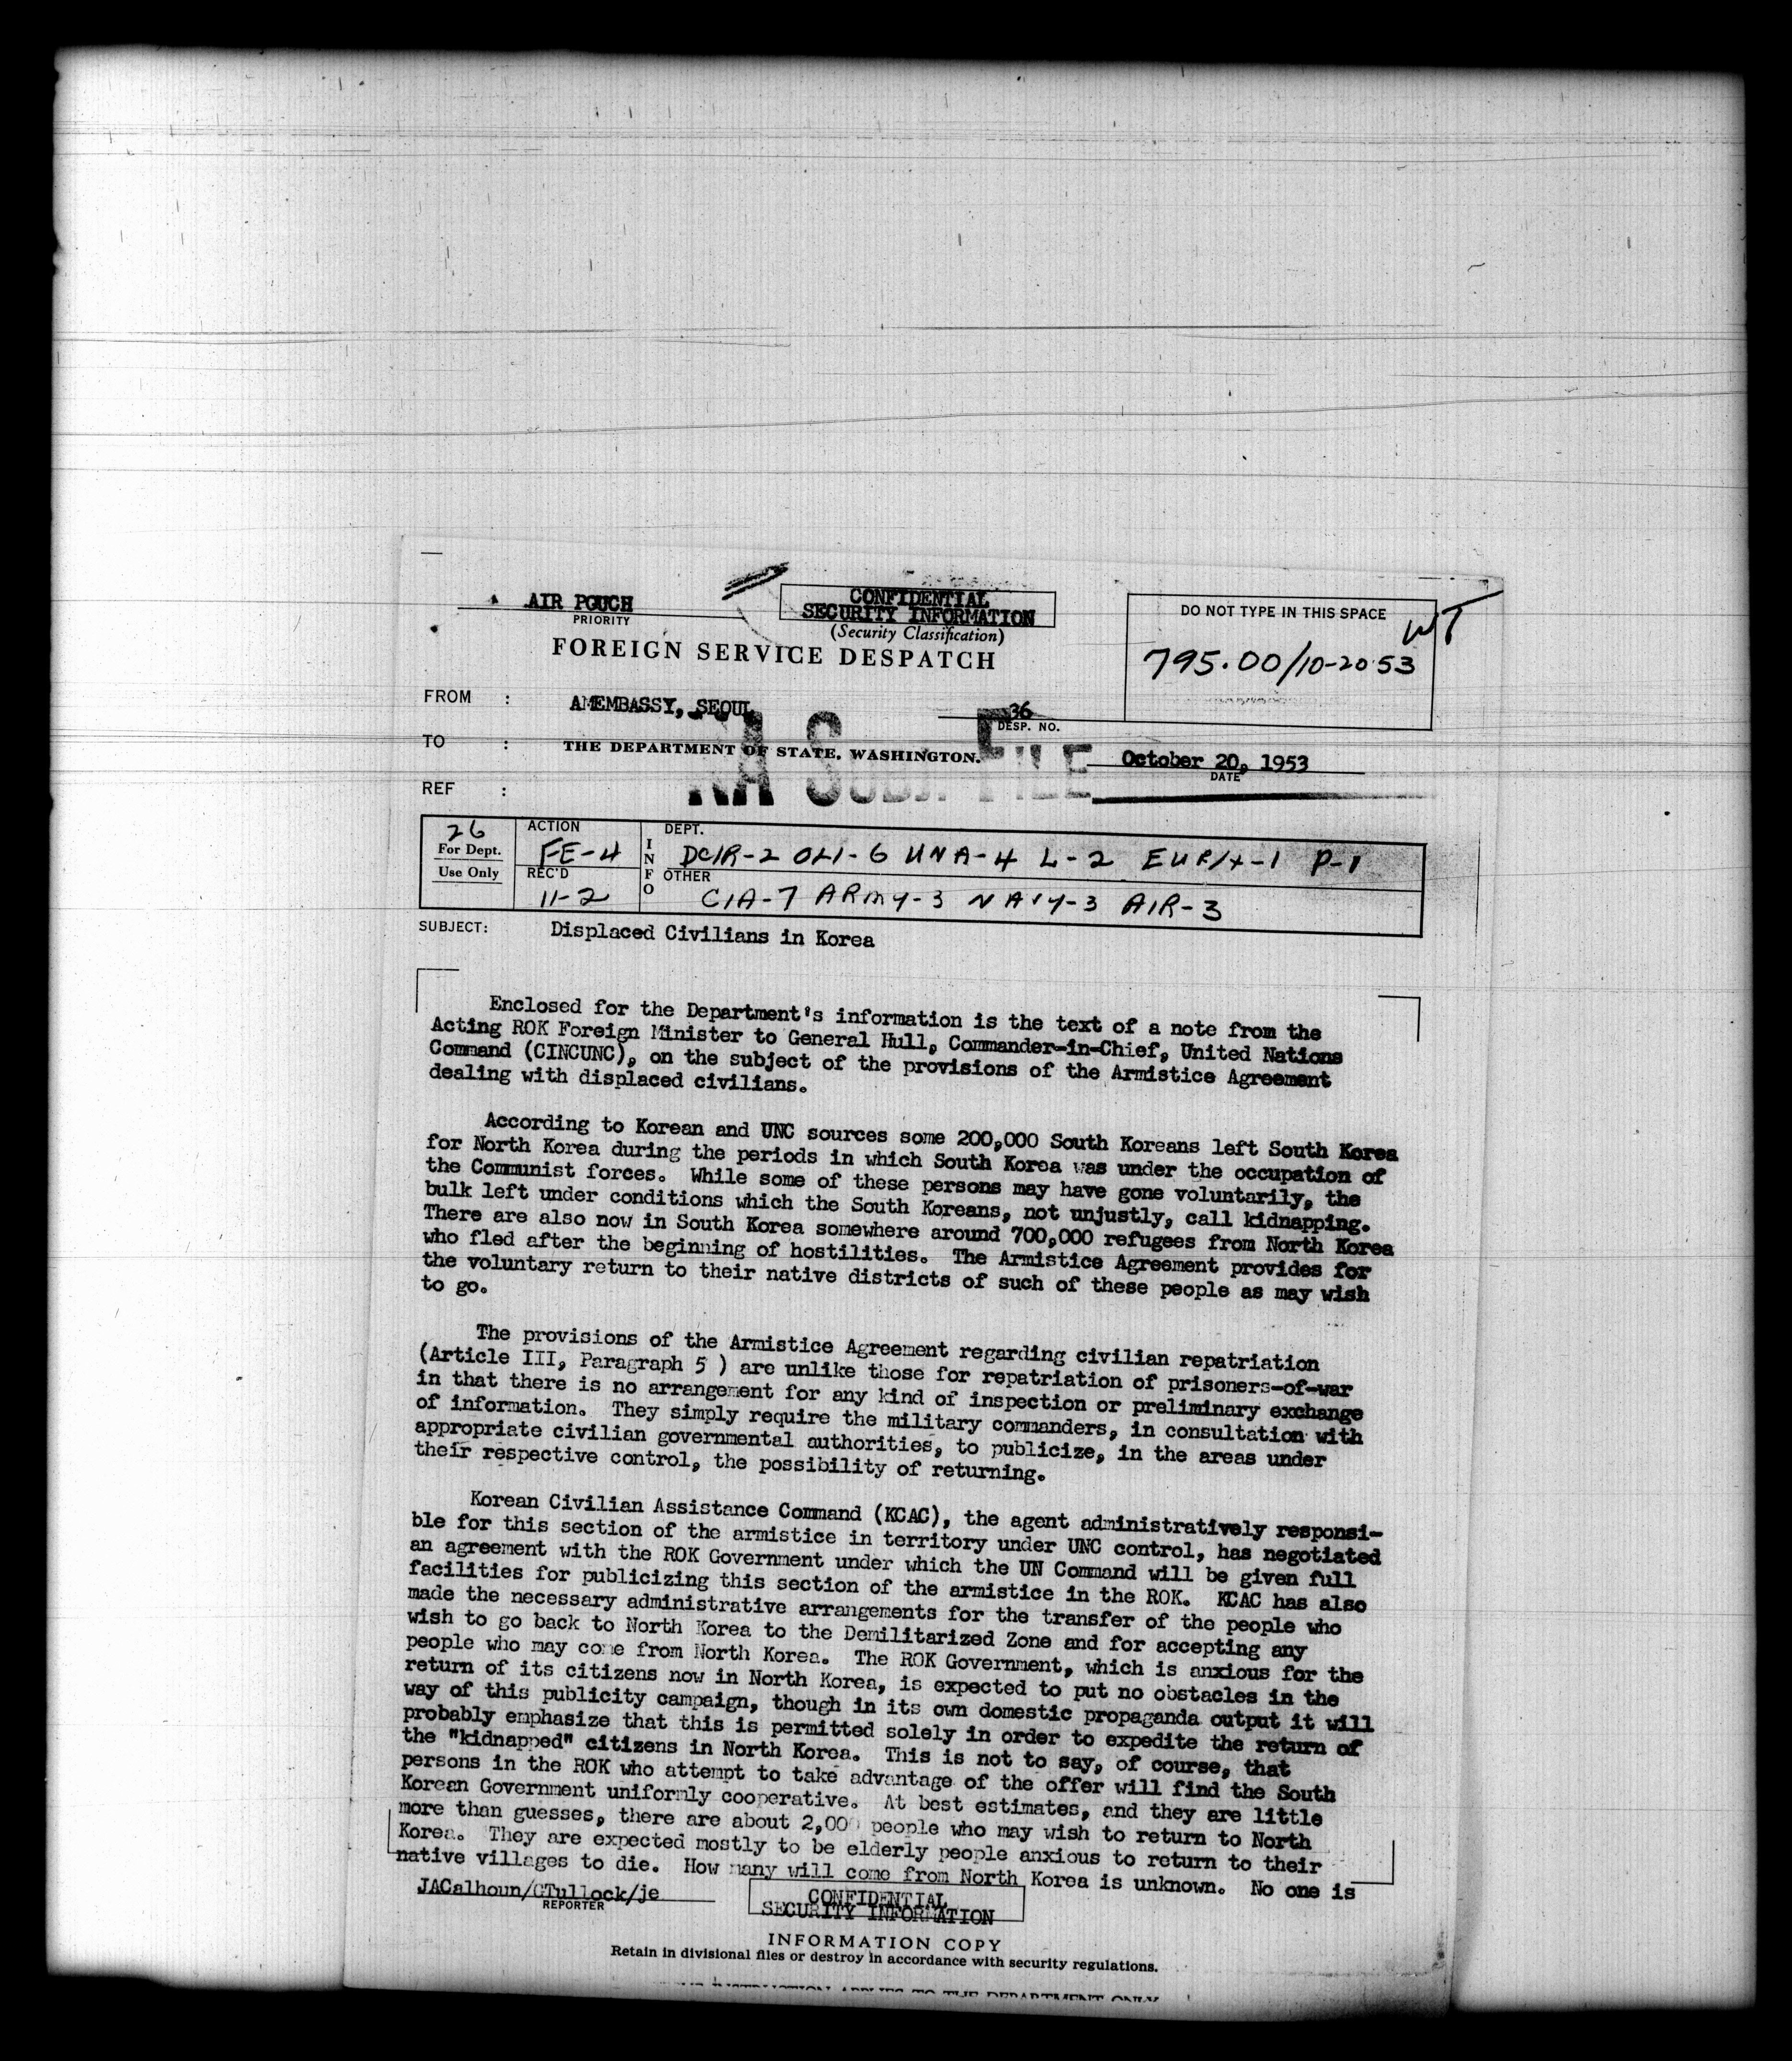 AIR POUCH
PRIORITY
CONFIDENTIAL
SECURITY INFORMATION
(Security Classification)
DO NOT TYPE IN THIS SPACE
WT
795.00/10-2053
FOREIGN SERVICE DESPATCH
FROM : AMEMBASSY, SEOUL
36
DESP. NO.
TO : THE DEPARTMENT OF STATE, WASHINGTON.
October 20, 1953
DATE
FILE
REF :
26
For Dept.
Use Only
ACTION
FE-4
REC'D
11-2
INFO
DEPT.
DCIR-2 OLI-6 UNA-4 L-2 EUR/X-1 P-1
OTHER
CIA-7 ARMY-3 NAVY-3 AIR-3
SUBJECT: Displaced Civilians in Korea
Enclosed for the Department's information is the text of a note from the
Acting ROK Foreign Minister to General Hull, Commander-in-Chief, United Nations
Command (CINCUNC), on the subject of the provisions of the Armistice Agreement
dealing with displaced civilians.
According to Korean and UNC sources some 200,000 South Koreans left South Korea
for North Korea during the periods in which South Korea was under the occupation of
the Communist forces. While some of these persons may have gone voluntarily, the
bulk left under conditions which the South Koreans, not unjustly, call kidnapping.
There are also now in South Korea somewhere around 700,000 refugees from North Korea
who fled after the beginning of hostilities. The Armistice Agreement provides for
the voluntary return to their native districts of such of these people as may wish
to go.
The provisions of the Armistice Agreement regarding civilian repatriation
(Article III, Paragraph 5 ) are unlike those for repatriation of prisoners-of-war
in that there is no arrangement for any kind of inspection or preliminary exchange
of information. They simply require the military commanders, in consultation with
appropriate civilian governmental authorities, to publicize, in the areas under
their respective control, the possibility of returning.
Korean Civilian Assistance Command (KCAC), the agent administratively responsi-
ble for this section of the armistice in territory under UNC control, has negotiated
an agreement with the ROK Government under which the UN Command will be given full
facilities for publicizing this section of the armistice in the ROK. KCAC has also
made the necessary administrative arrangements for the transfer of the people who
wish to go back to North Korea to the Demilitarized Zone and for accepting any
people who may come from North Korea. The ROK Government, which is anxious for the
return of its citizens now in North Korea, is expected to put no obstacles in the
way of this publicity campaign, though in its own domestic propaganda output it will
probably emphasize that this is permitted solely in order to expedite the return of
the "kidnapped" citizens in North Korea. This is not to say, of course, that
persons in the ROK who attempt to take advantage of the offer will find the South
Korean Government uniformly cooperative. At best estimates, and they are little
more than guesses, there are about 2,000 people who may wish to return to North
Korea. They are expected mostly to be elderly people anxious to return to their
native villages to die. How many will come from North Korea is unknown. No one is
JACalhoun/GTullock/je
REPORTER
CONFIDENTIAL
SECURITY INFORMATION
INFORMATION COPY
Retain in divisional files or destroy in accordance with security regulations.
INSTRUCTION APPLIES TO THE DEPARTMENT ONLY